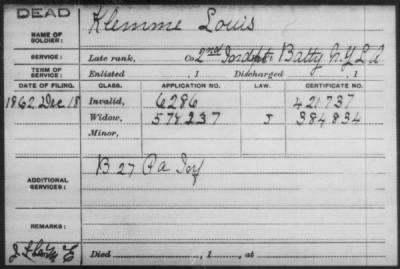 DEAD
NAME OF SOLDIER: Klemme Louis
SERVICE: Late rank, Co. 2nd Indpt Batty N.Y. L.A.
TERM OF SERVICE: Enlisted , 1 Discharged , 1
DATE OF FILING. CLASS. APPLICATION NO. LAW. CERTIFICATE NO.
1862 Dec 18 Invalid, 6286 421737
Widow, 574237 J 384834
Minor,
ADDITIONAL SERVICES: B 27 Pa Inf
REMARKS:
Died , 1 , at